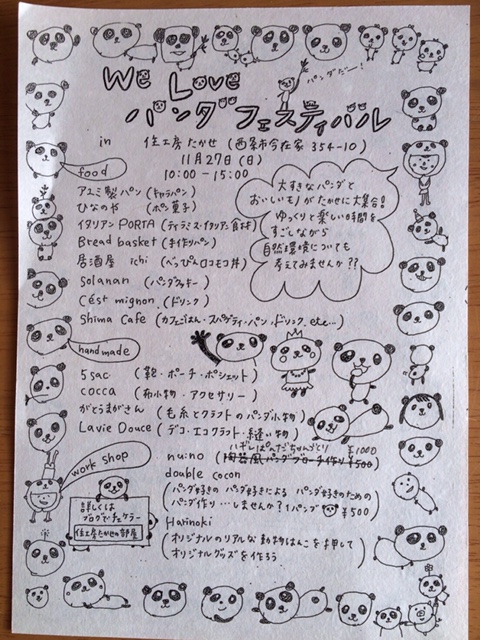 We Love
パンダだー!
パンダフェスティバル
in 住工房たかせ (西条市今在家354-10)
11月27日(日)
10:00-15:00
food
アスミ製パン (キャラパン)
ひなのや (ポン菓子)
イタリアンPORTA (ティラミス・イタリアン食材)
Bread basket (手作りパン)
居酒屋 ichi (べっぴんロコモコ丼)
Solanan (パンダクッキー)
Cést mignon (ドリンク)
Shima Cafe (カフェごはん・スパゲティ・パン、ドリンク etc…)
大すきなパンダと
おいしいモノがたかせに大集合!
ゆっくりと楽しい時間を
すごしながら
自然環境についても
考えてみませんか??
handmade
5sac (鞄・ポーチ・ポシェット)
cocca (布小物・アクセサリー)
がとうまがさん (毛糸とクラフトのパンダ小物)
Lavie Douce (デコ・エコクラフト・縫い物)
work shop
ハギレぱんだちゃんづくり ¥1000
nu:no (陶芸風パンダブローチ作り ¥500
double cocon
(パンダ好きの パンダ好きによる パンダ好きのための
パンダ作り …しませんか? 1パンダ ¥500
Harinoki
(オリジナルのリアルな動物はんこを押して
オリジナルグッズを作ろう
詳しくは
ブログでチェックラー
住工房たかせの部屋